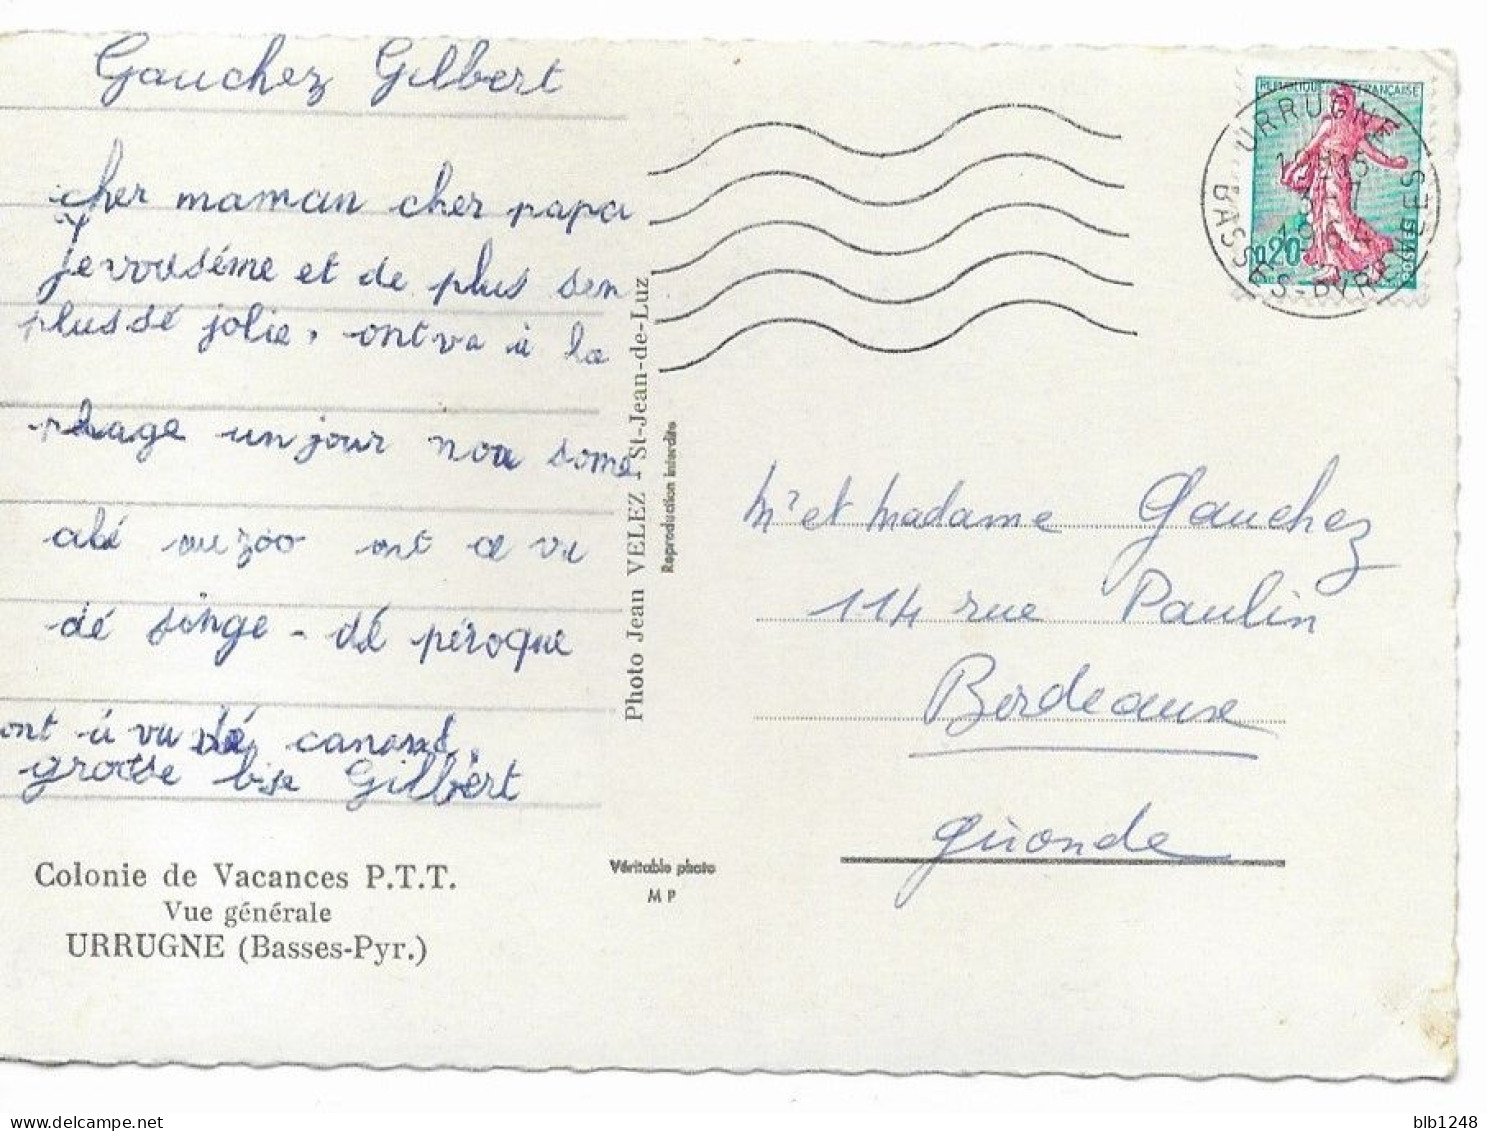 Gauchez Gilbert
cher maman cher papa
je vouséme et de plus sen
plussé jolie, ont va à la
plage un jour nou some
alé au zoo ont a vu
dé singe - dé péroque
ont à vu dé canard,
grosse bise Gilbert
Colonie de Vacances P.T.T.
Vue générale
URRUGNE (Basses-Pyr.)
Photo Jean VELEZ - St-Jean-de-Luz
Reproduction interdite
Véritable photo
M P
REPUBLIQUE FRANÇAISE
0,20
POSTES
URRUGNE
3-7
1964
BASSES-PYRENEES
Mr et Madame Gauchez
114 rue Paulin
Bordeaux
Gironde
blb1248